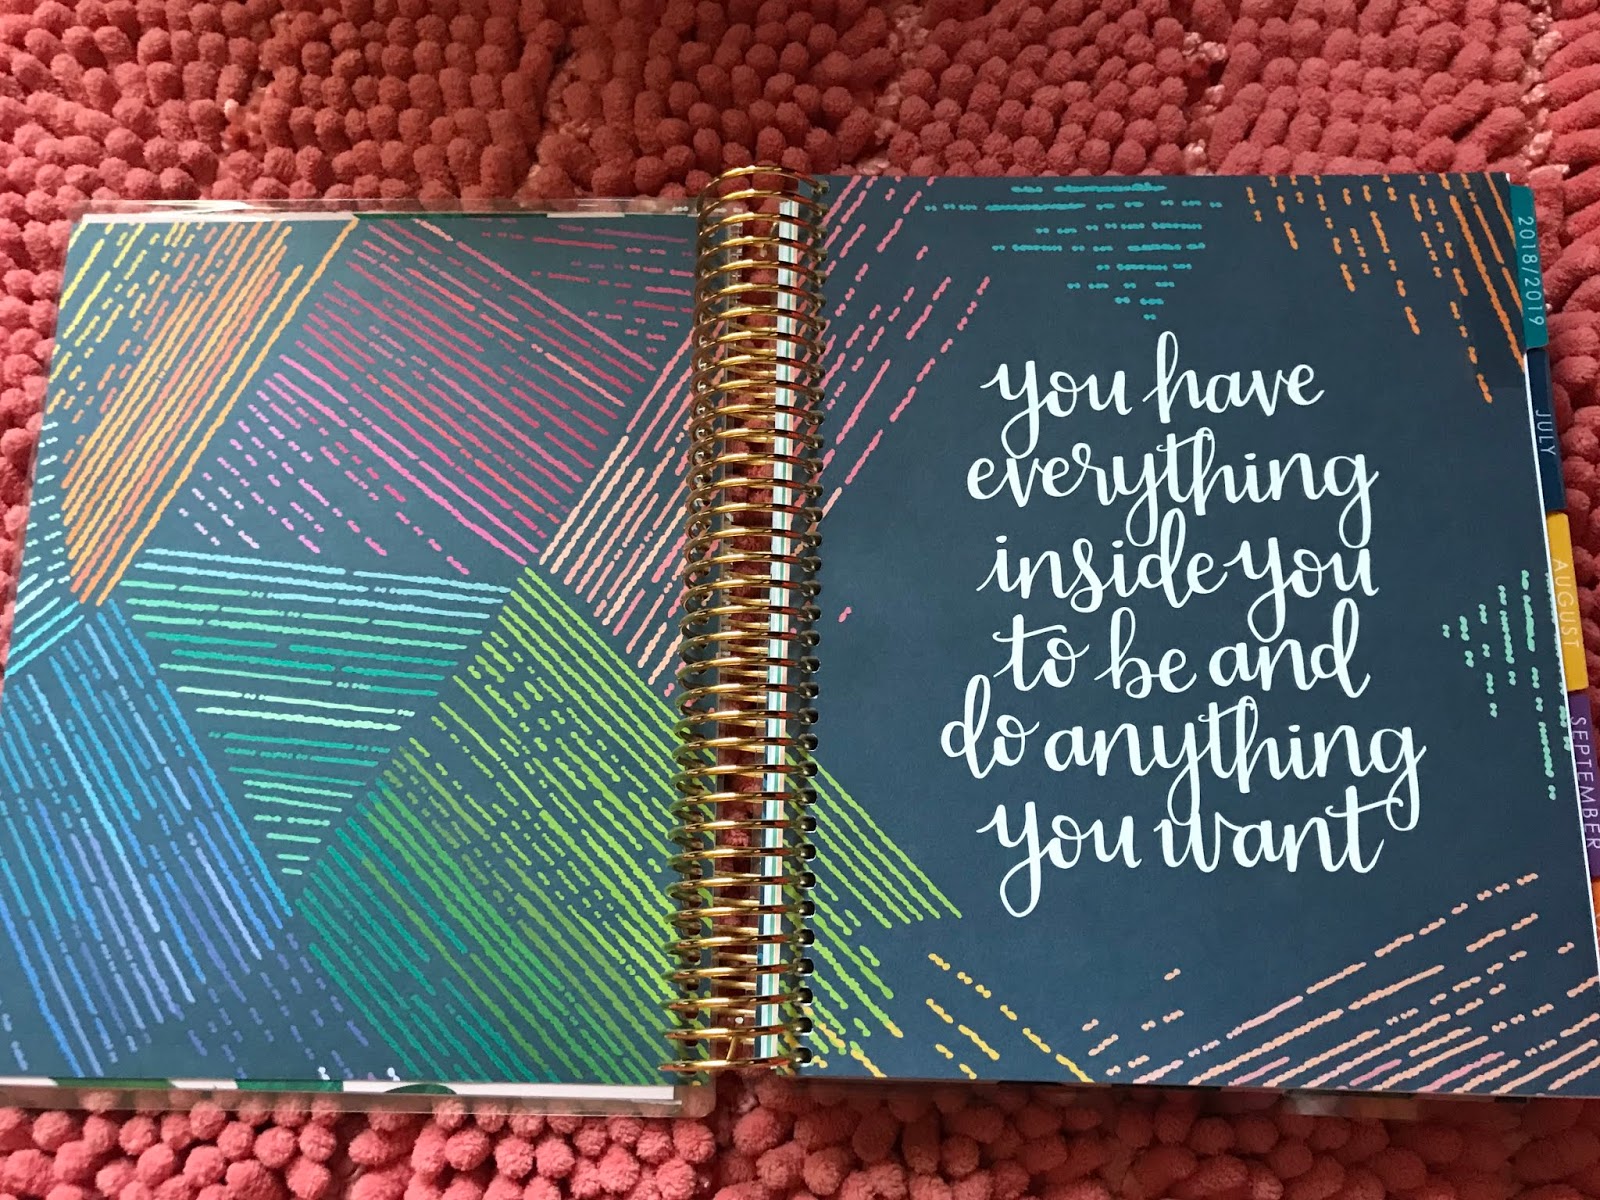 you have
everything
inside you
to be and
do anything
you want
2018/2019
JULY
AUGUST
SEPTEMBER